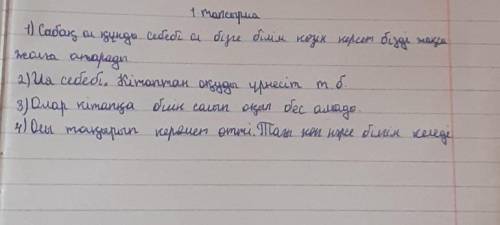 1 тапсырма
1) Сабақ ол құнды себебі ол бізге білім көзін көрсет бізді жаққа
жолға апарады
2) Ия себебі. Кітаптан оқуды үрнесіт т.б.
3) Олар кітапқа бйім салып оқып бес алады.
4) Осы тақырып керемет өтті. Тағы көп нрсе білім келеді